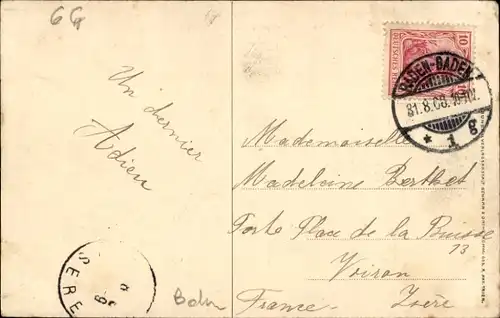 6G
Un dernier
Adieu
10
10
DEUTSCHES
BADEN-BADEN 1
31.8.08.
* i g
Mademoiselle
Madeleine Berthet
Porte Place de la Buisse
73
Voiron
France Isère
ISERE
Baden